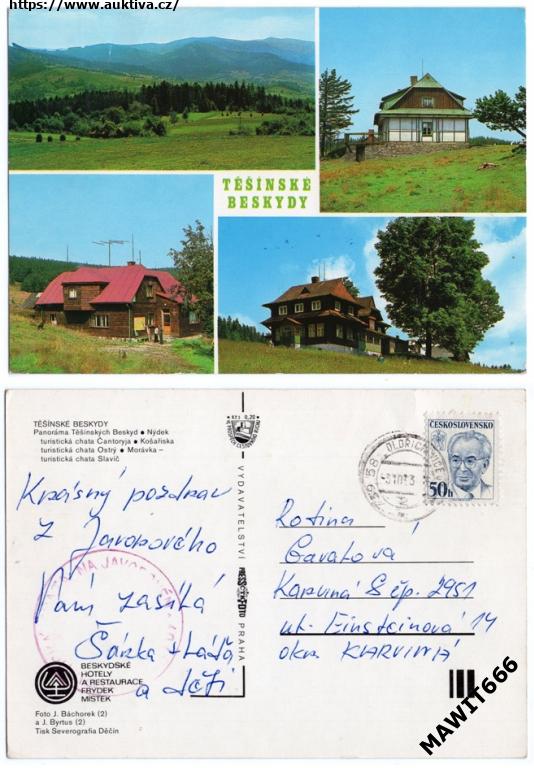 https://www.auktiva.cz/
TĚŠÍNSKÉ
BESKYDY
TĚŠÍNSKÉ BESKYDY
Panoráma Těšínských Beskyd ● Nýdek
turistická chata Čantoryja ● Košařiska
turistická chata Ostrý ● Morávka –
turistická chata Slavíč
Krásný pozdrav
z Javorového
Vám zasílá
Šárka
a děti
BESKYDSKÉ
HOTELY
A RESTAURACE
FRÝDEK
MÍSTEK
Foto J. Báchorek (2)
a J. Byrtus (2)
Tisk Severografia Děčín
Kčs 0,20
VYDAVATELSTVÍ
PRESSFOTO
PRAHA
ČESKOSLOVENSKO
50h
Rodina
Gavalova
Karviná 8 čp. 2951
ul. Einsteinová 14
okr. KARVINÁ
MAWIT666